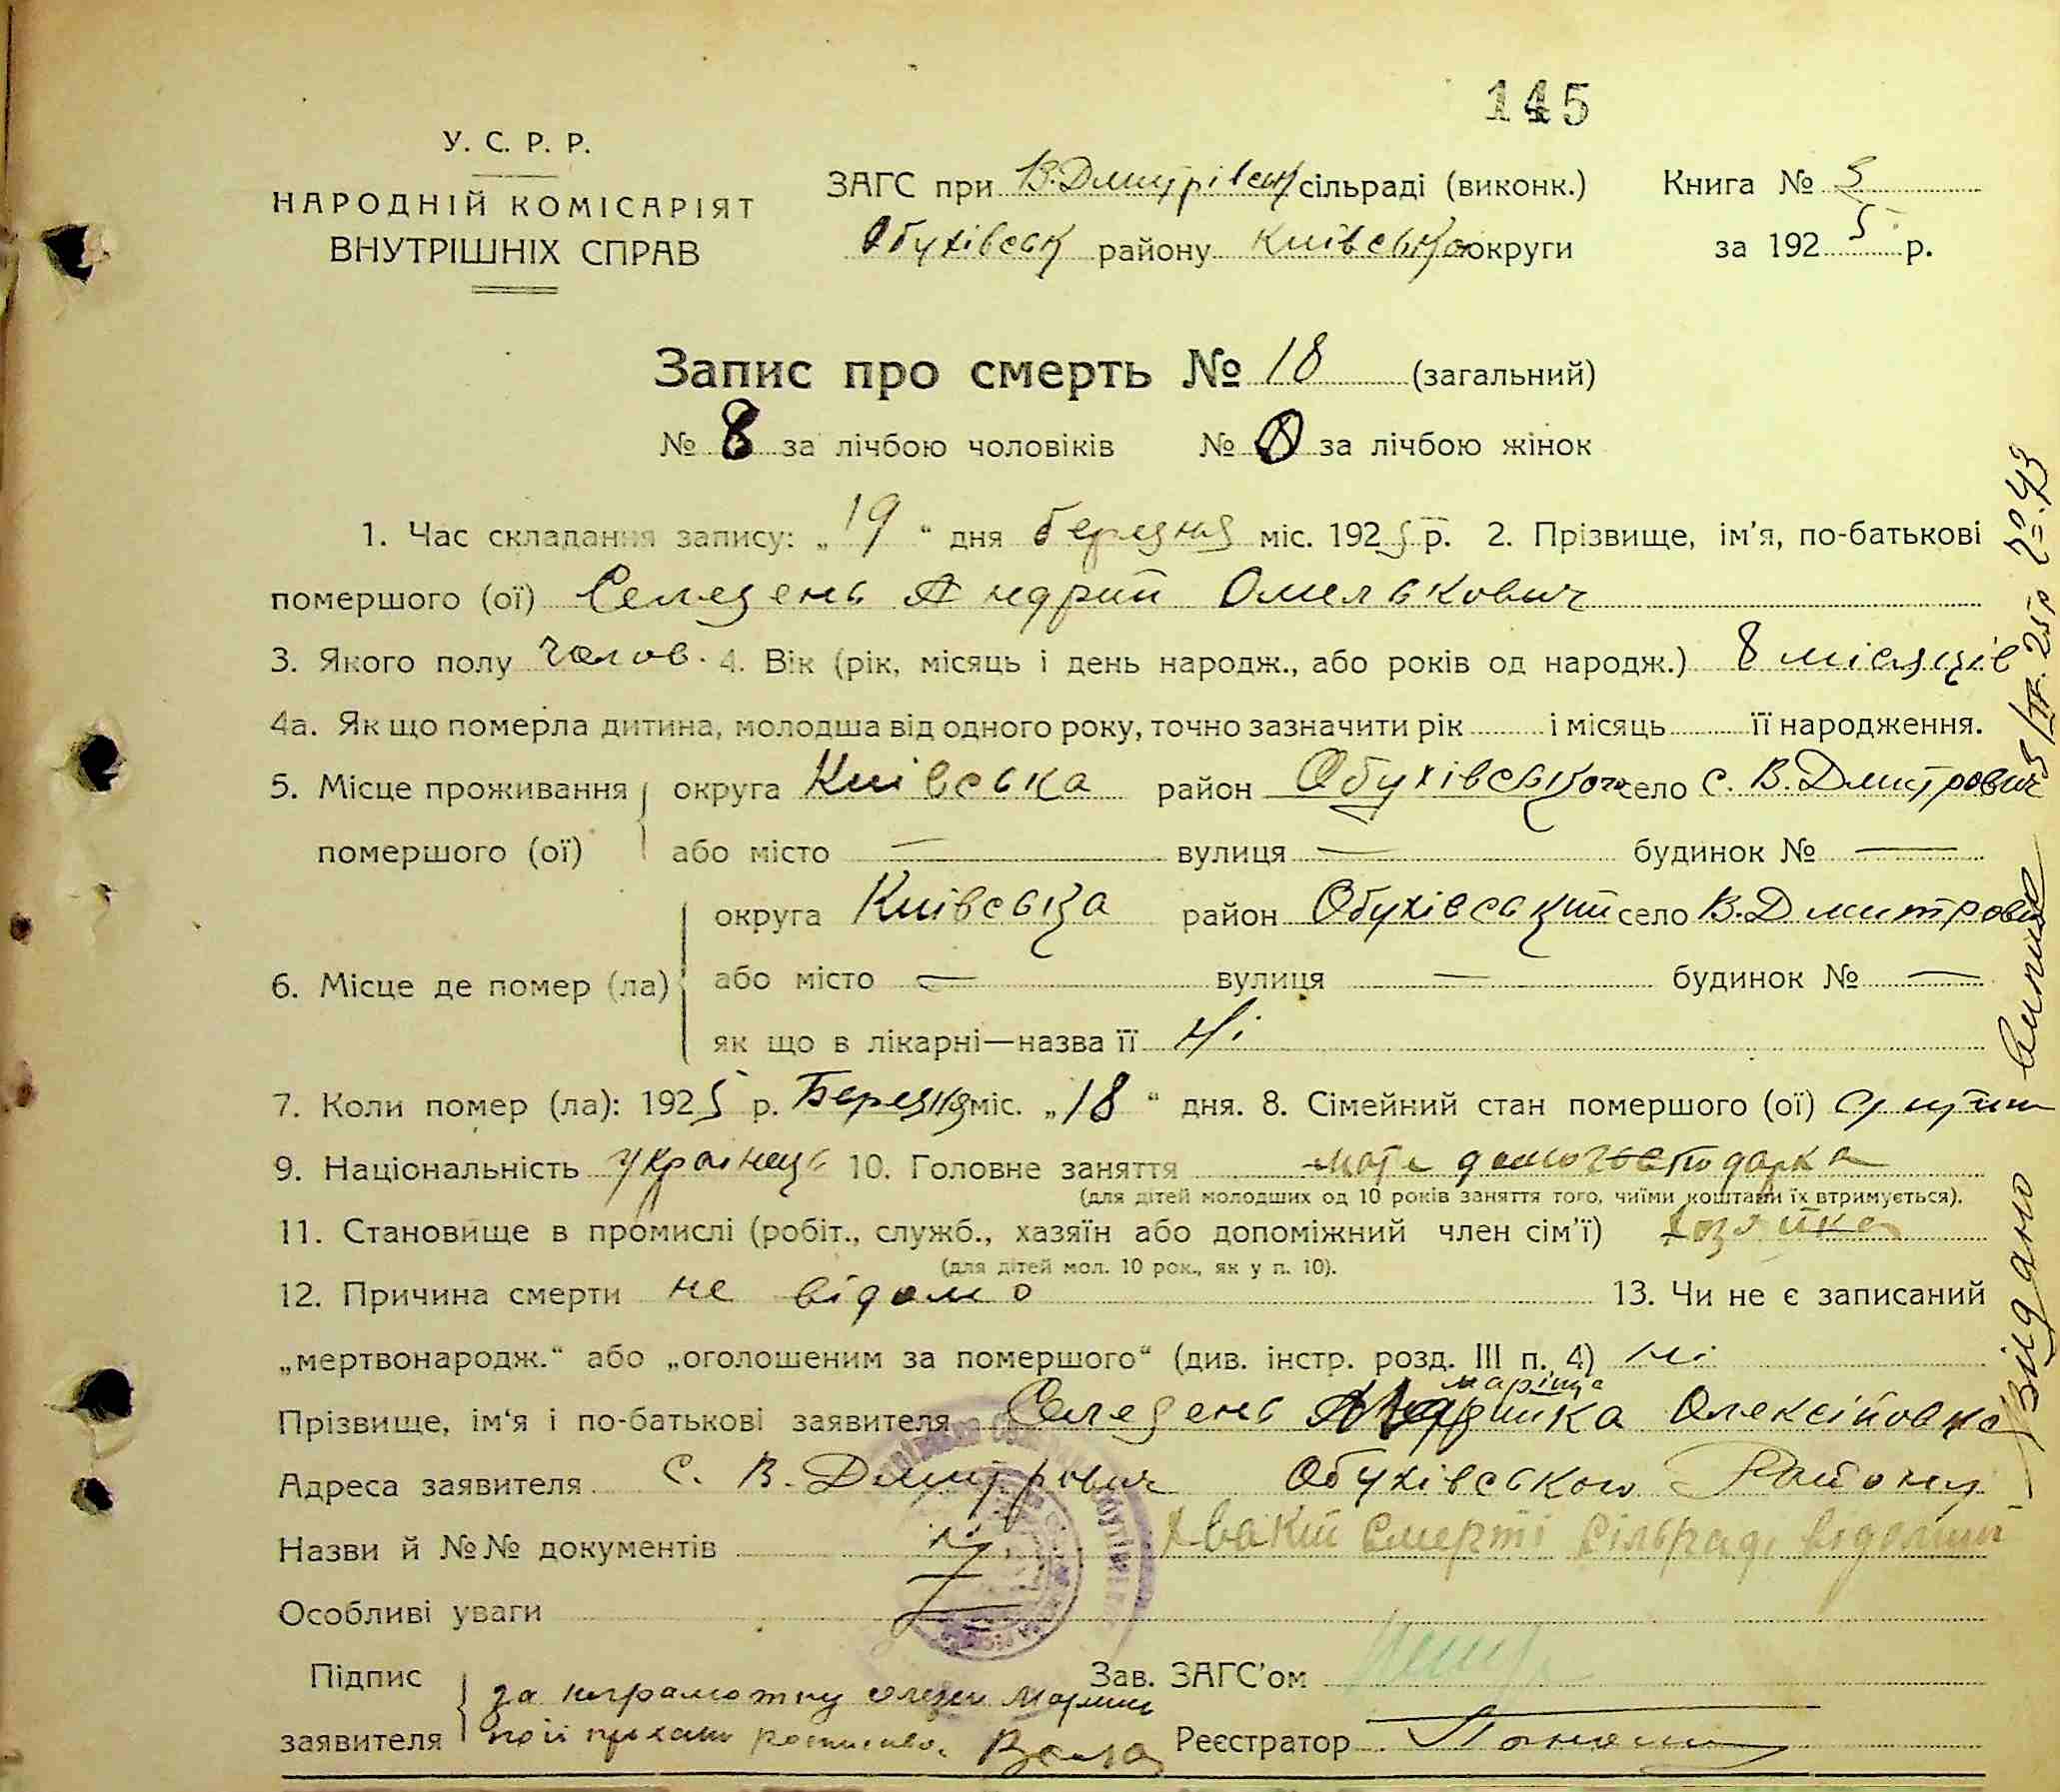 145
У. С. Р. Р.
НАРОДНІЙ КОМІСАРІЯТ
ВНУТРІШНІХ СПРАВ
ЗАГС при В.Дмитрівськ сільраді (виконк.) Книга № 5
Обухівськ району Київської округи за 1925 р.
Запис про смерть № 18 (загальний)
№ 8 за лічбою чоловіків № за лічбою жінок
1. Час складання запису: „19“ дня березня міс. 1925 р. 2. Прізвище, ім'я, по-батькові
помершого (ої) Селезень Андрий Омелькович
3. Якого полу чолов. 4. Вік (рік, місяць і день народж., або років од народж.) 8 місяців
4а. Як що померла дитина, молодша від одного року, точно зазначити рік і місяць її народження.
5. Місце проживання помершого (ої) округа Київська район Обухівського село с. В.Дмитрович
або місто — вулиця — будинок № —
6. Місце де помер (ла) округа Київська район Обухівський село В.Дмитрович
або місто — вулиця — будинок № —
як що в лікарні—назва її Ні
7. Коли помер (ла): 1925 р. Березня міс. „18“ дня. 8. Сімейний стан помершого (ої)
9. Національність українець 10. Головне заняття мати домогосподарка
(для дітей молодших од 10 років заняття того, чиїми коштами їх втримується).
11. Становище в промислі (робіт., служб., хазяїн або допоміжний член сім'ї) хозяйка
(для дітей мол. 10 рок., як у п. 10).
12. Причина смерти не відомо 13. Чи не є записаний
„мертвонародж.“ або „оголошеним за помершого“ (див. інстр. розд. III п. 4) ні
Прізвище, ім'я і по-батькові заявителя Селезень Олексійовна
Адреса заявителя с. В. Дмитрович Обухівського Району
Назви й №№ документів смерті сільраді відомий
Особливі уваги
Підпис заявителя за неграмотну
Зав. ЗАГС'ом
Реєстратор
Видано